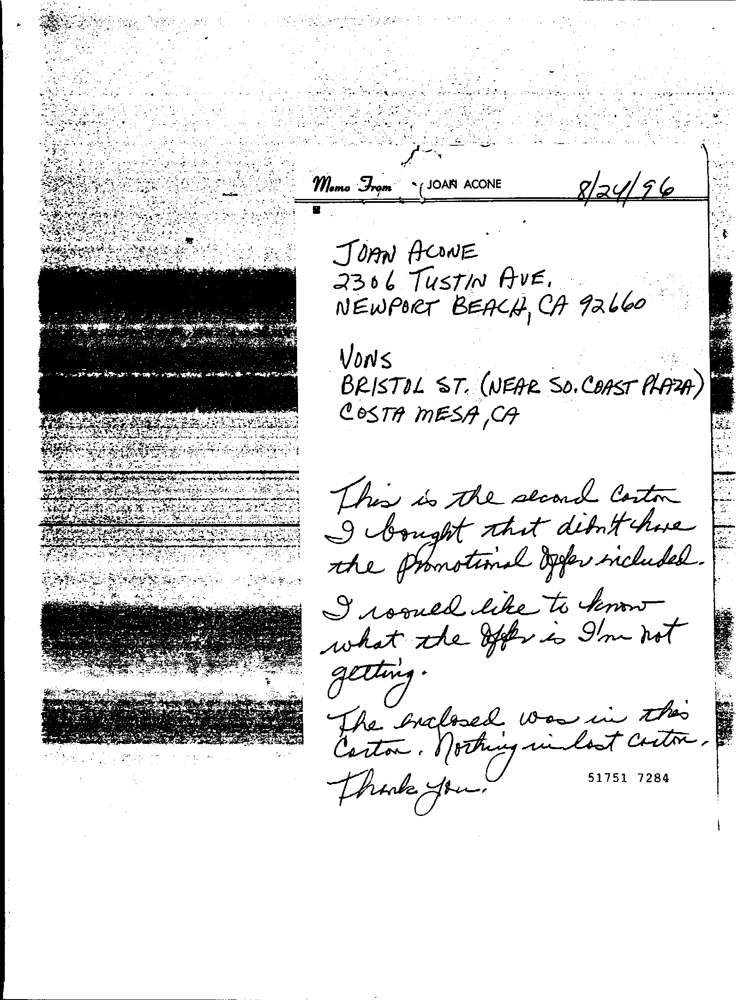 Memo From JOAN ACONE 8/24/96
JOAN ACONE
2306 TUSTIN AVE.
NEWPORT BEACH, CA 92660
VONS
BRISTOL ST. (NEAR SO. COAST PLAZA)
COSTA MESA, CA
This is the second carton
I bought that didn't have
the promotional offer included.
I would like to know
what the offer is I'm not
getting.
The enclosed was in this
carton. Nothing in last carton.
Thank you.
51751 7284